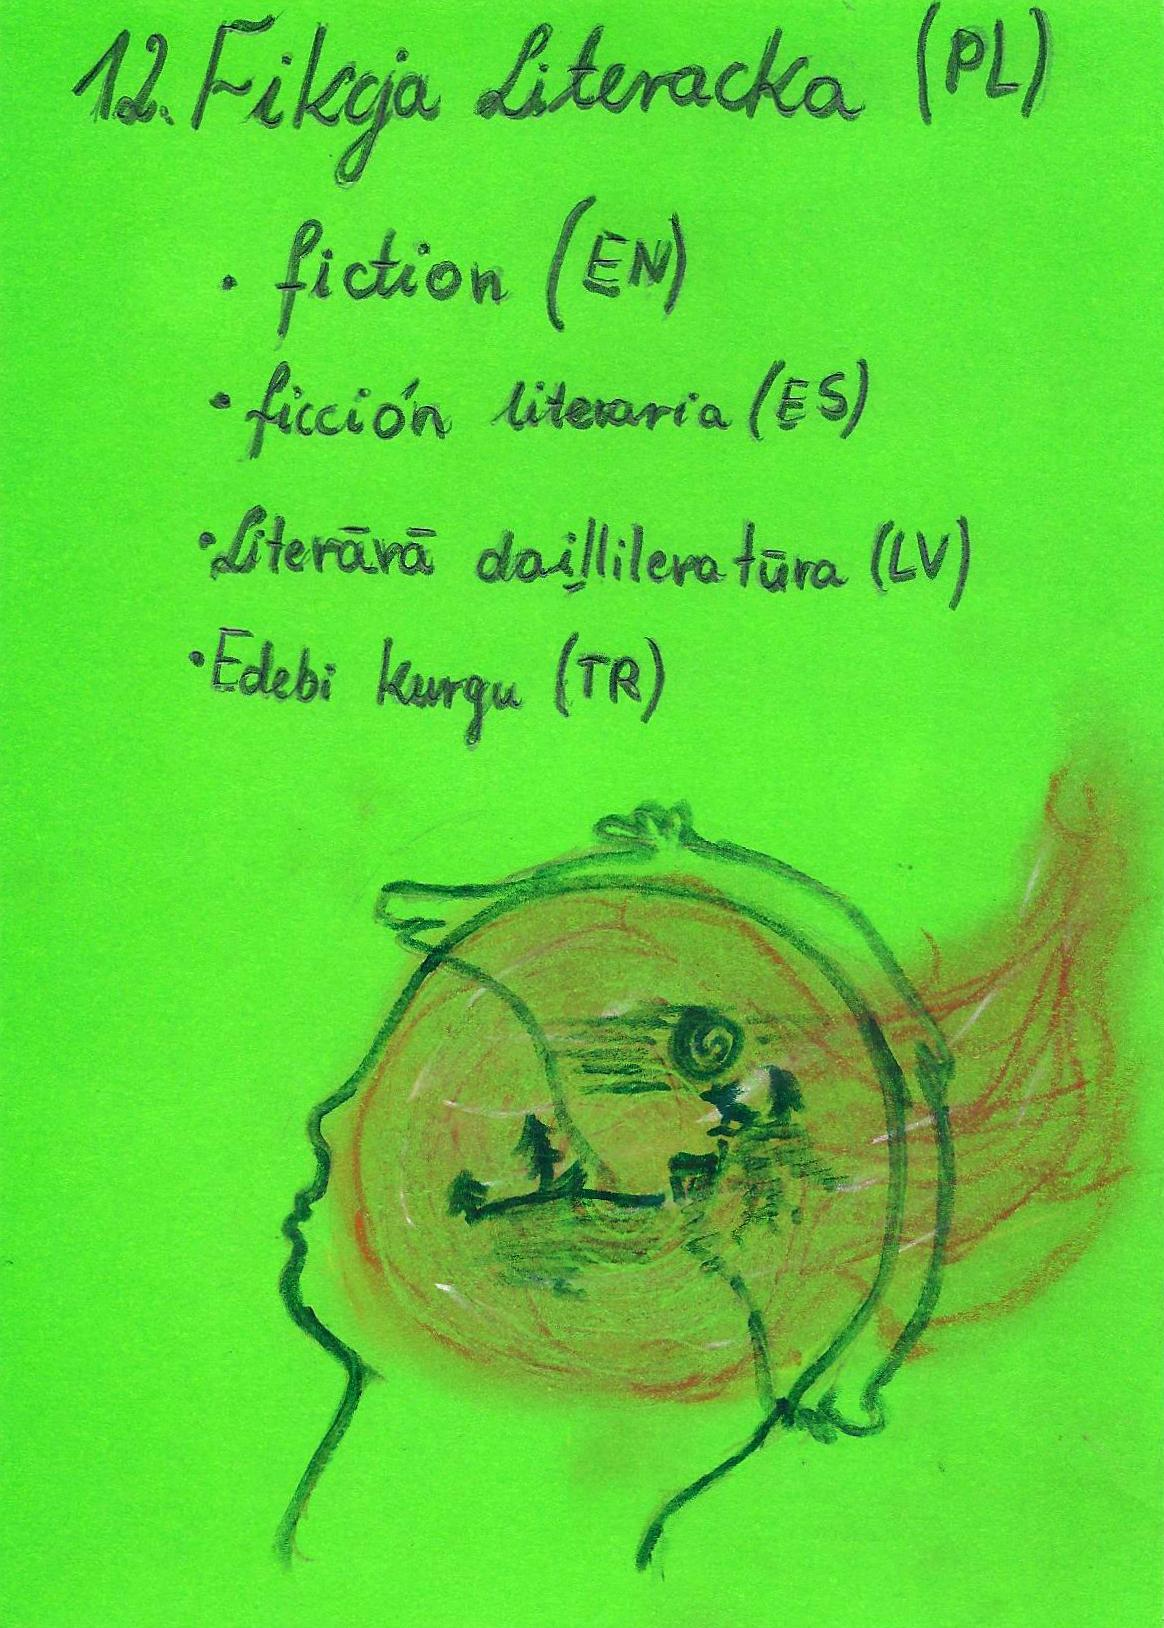 12. Fikcja Literacka (PL)
• fiction (EN)
• ficción literaria (ES)
• Literārā daiļliteratūra (LV)
• Edebi kurgu (TR)